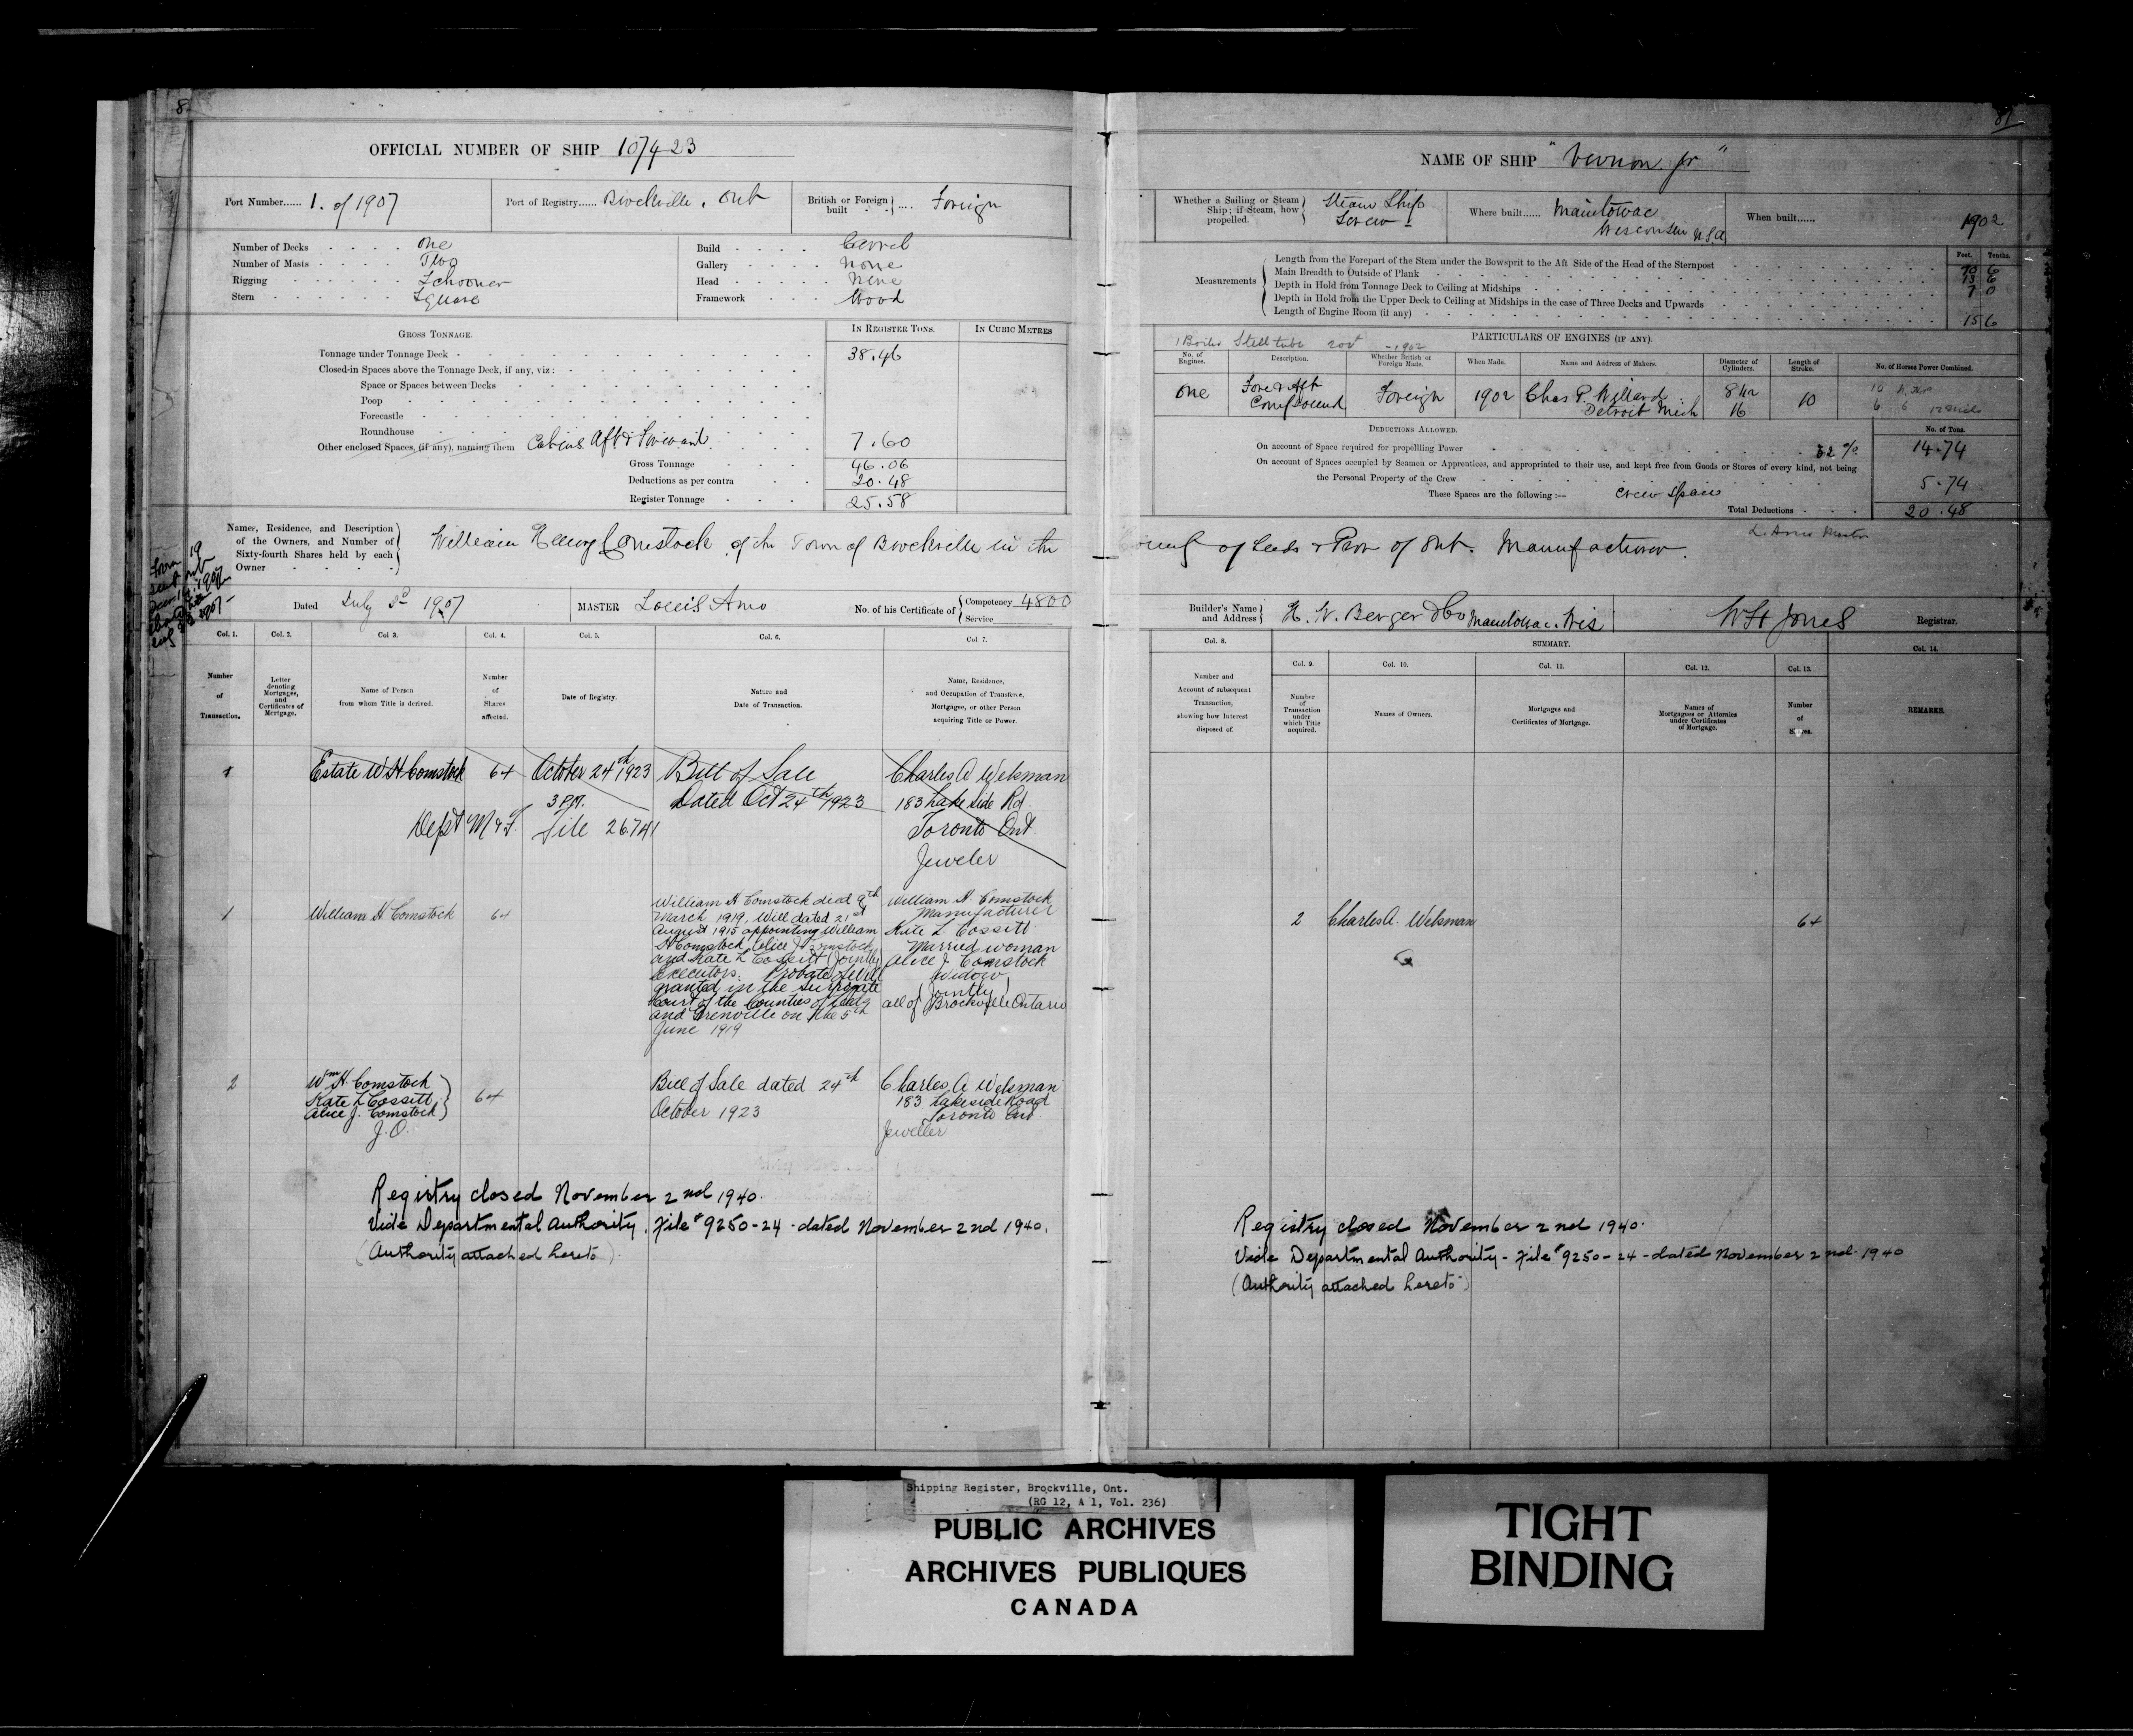 OFFICIAL NUMBER OF SHIP 107423
Port Number...... 1. of 1907
Port of Registry...... Brockville, Ont
British or Foreign built .... Foreign
Number of Decks One
Number of Masts Two
Rigging Schooner
Stern Square
Build Carvel
Gallery None
Head None
Framework Wood
GROSS TONNAGE.
IN REGISTER TONS.
IN CUBIC METRES
Tonnage under Tonnage Deck 38.46
Closed-in Spaces above the Tonnage Deck, if any, viz:
Space or Spaces between Decks
Poop
Forecastle
Roundhouse
Other enclosed Spaces, (if any), naming them Cabins Aft & Forward. 7.60
Gross Tonnage 46.06
Deductions as per contra 20.48
Register Tonnage 25.58
Names, Residence, and Description
of the Owners, and Number of
Sixty-fourth Shares held by each
Owner
William Henry Comstock of the Town of Brockville in the
Dated July 3rd 1907
MASTER Louis Amo
No. of his Certificate of Competency 4800
Service
Col. 1. Col. 2. Col 3. Col. 4. Col. 5. Col. 6. Col 7.
Number of Transaction.
Letter denoting Mortgages, and Certificates of Mortgage.
Name of Person from whom Title is derived.
Number of Shares affected.
Date of Registry.
Nature and Date of Transaction.
Name, Residence, and Occupation of Transferee, Mortgagee, or other Person acquiring Title or Power.
1 Estate W H Comstock 64 October 24th 1923 Bill of Sale Charles A Welsman
3 P.M. Dated Oct 24th 1923 183 Lake Side Rd
Dept M & F. file 26741 Toronto Ont
Jeweler
1 William H Comstock 64
William H Comstock died 9th
March 1919, Will dated 21st
August 1915 appointing William
H Comstock, Alice J Comstock
and Kate L Cossitt (Jointly)
Executors. Probate of Will
granted in the Surrogate
Court of the Counties of Leeds
and Grenville on the 5th
June 1919
William H. Comstock
Manufacturer
Kate L. Cossitt
Married woman
Alice J. Comstock
Widow
(Jointly)
all of Brockville Ontario
2 Wm H. Comstock
Kate L Cossitt
Alice J. Comstock
J.O.
64
Bill of Sale dated 24th
October 1923
Charles A Welsman
183 Lakeside Road
Toronto Ont
Jeweller
Registry closed November 2nd 1940.
Vide Departmental Authority. File # 9250-24 - dated November 2nd 1940.
(Authority attached hereto).
81
NAME OF SHIP "Vernon Jr"
Whether a Sailing or Steam
Ship; if Steam, how
propelled.
Steam Ship
Screw
Where built...... Manitowac
Wisconsin U.S.A
When built...... 1902
Measurements
Feet. Tenths.
Length from the Forepart of the Stem under the Bowsprit to the Aft Side of the Head of the Sternpost 70 6
Main Breadth to Outside of Plank 13 6
Depth in Hold from Tonnage Deck to Ceiling at Midships 7 0
Depth in Hold from the Upper Deck to Ceiling at Midships in the case of Three Decks and Upwards
Length of Engine Room (if any) 15 6
PARTICULARS OF ENGINES (IF ANY).
No. of Engines.
Description.
Whether British or Foreign Made.
When Made.
Name and Address of Makers.
Diameter of Cylinders.
Length of Stroke.
No. of Horses Power Combined.
One Fore & Aft Compound Foreign 1902 Chas P. Willard Detroit Mich 8 1/2 16 10
DEDUCTIONS ALLOWED.
No. of Tons.
On account of Space required for propelling Power 32 % 14.74
On account of Spaces occupied by Seamen or Apprentices, and appropriated to their use, and kept free from Goods or Stores of every kind, not being
the Personal Property of the Crew 5.74
These Spaces are the following :— Crew Space
Total Deductions 20.48
County of Leeds & Prov of Ont. Manufacturer.
Builder's Name
and Address
H. W. Berger & Co Manitowac. Wis
W H Jones Registrar.
Col. 8. SUMMARY. Col. 14.
Col. 9. Col. 10. Col. 11. Col. 12. Col. 13.
Number and Account of subsequent Transaction, showing how Interest disposed of.
Number of Transaction under which Title acquired.
Names of Owners.
Mortgages and Certificates of Mortgage.
Names of Mortgagees or Attornies under Certificates of Mortgage.
Number of Shares.
REMARKS.
2 Charles A. Welsman 64
Registry closed November 2nd 1940.
Vide Departmental Authority - File # 9250-24 - dated November 2nd 1940
(Authority attached hereto)
Shipping Register, Brockville, Ont.
(RG 12, A 1, Vol. 236)
PUBLIC ARCHIVES
ARCHIVES PUBLIQUES
CANADA
TIGHT
BINDING